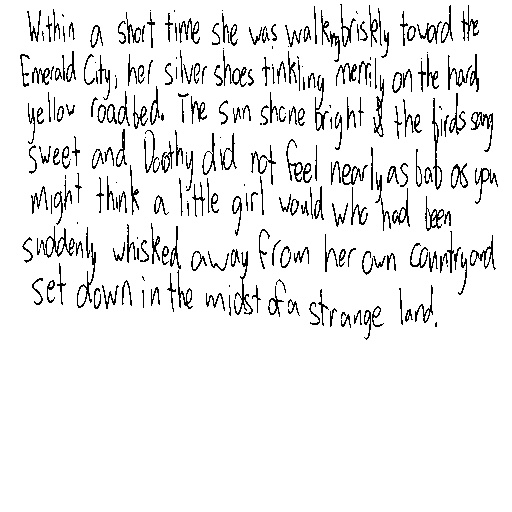 Within a short time she was walking briskly toward the
Emerald City, her silver shoes tinkling merrily on the hard,
yellow roadbed. The sun shone bright & the birds sang
sweet and Doothy did not feel nearly as bab as you
might think a little girl would who had been
suddenly whisked away from her own country and
set down in the midst of a strange land.